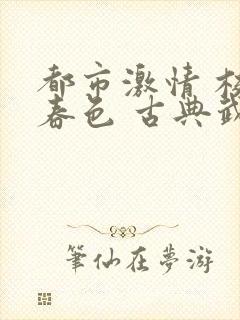 都市激情 校
春色 古典武
筆仙在夢游